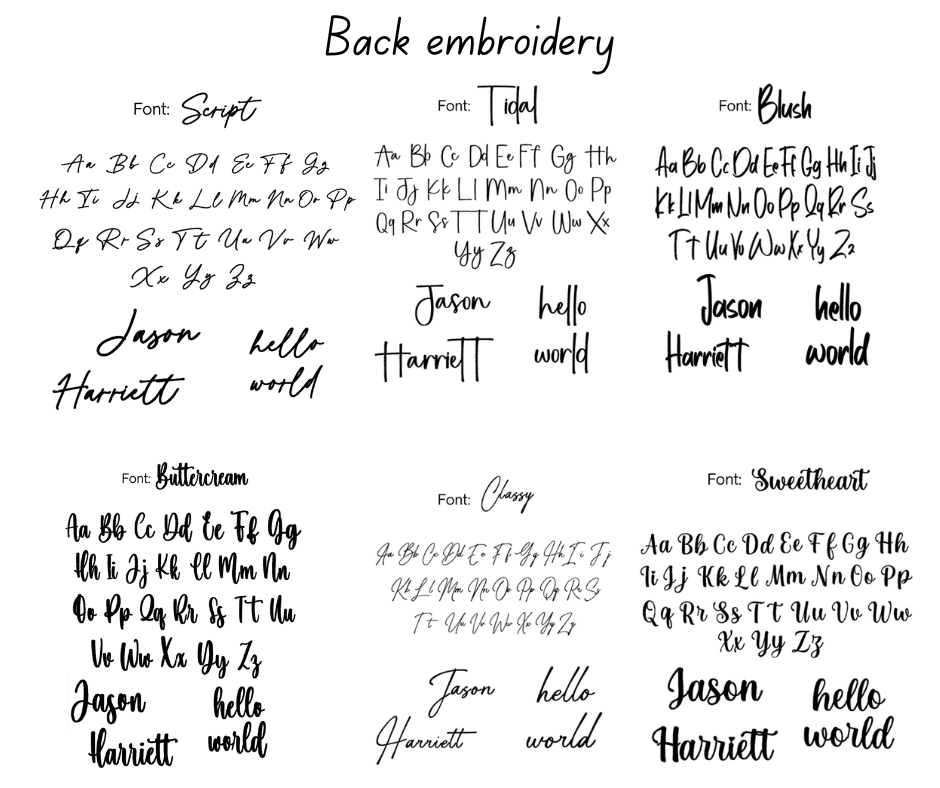 Back embroidery
Font: Script
Aa Bb Cc Dd Ee Ff Gg
Hh Ii Jj Kk Ll Mm Nn Oo Pp
Qq Rr Ss Tt Uu Vv Ww
Xx Yy Zz
Jason hello
Harriett world
Font: Tidal
Aa Bb Cc Dd Ee Ff Gg Hh
Ii Jj Kk Ll Mm Nn Oo Pp
Qq Rr Ss TT Uu Vv Ww Xx
Yy Zz
Jason hello
Harriett world
Font: Blush
Aa Bb Cc Dd Ee Ff Gg Hh Ii Jj
Kk Ll Mm Nn Oo Pp Qq Rr Ss
Tt Uu Vv Ww Xx Yy Zz
Jason hello
Harriett world
Font: Buttercream
Aa Bb Cc Dd Ee Ff Gg
Hh Ii Jj Kk Ll Mm Nn
Oo Pp Qq Rr Ss Tt Uu
Vv Ww Xx Yy Zz
Jason hello
Harriett world
Font: Classy
Aa Bb Cc Dd Ee Ff Gg Hh Ii Jj
Kk Ll Mm Nn Oo Pp Qq Rr Ss
Tt Uu Vv Ww Xx Yy Zz
Jason hello
Harriett world
Font: Sweetheart
Aa Bb Cc Dd Ee Ff Gg Hh
Ii Jj Kk Ll Mm Nn Oo Pp
Qq Rr Ss Tt Uu Vv Ww
Xx Yy Zz
Jason hello
Harriett world